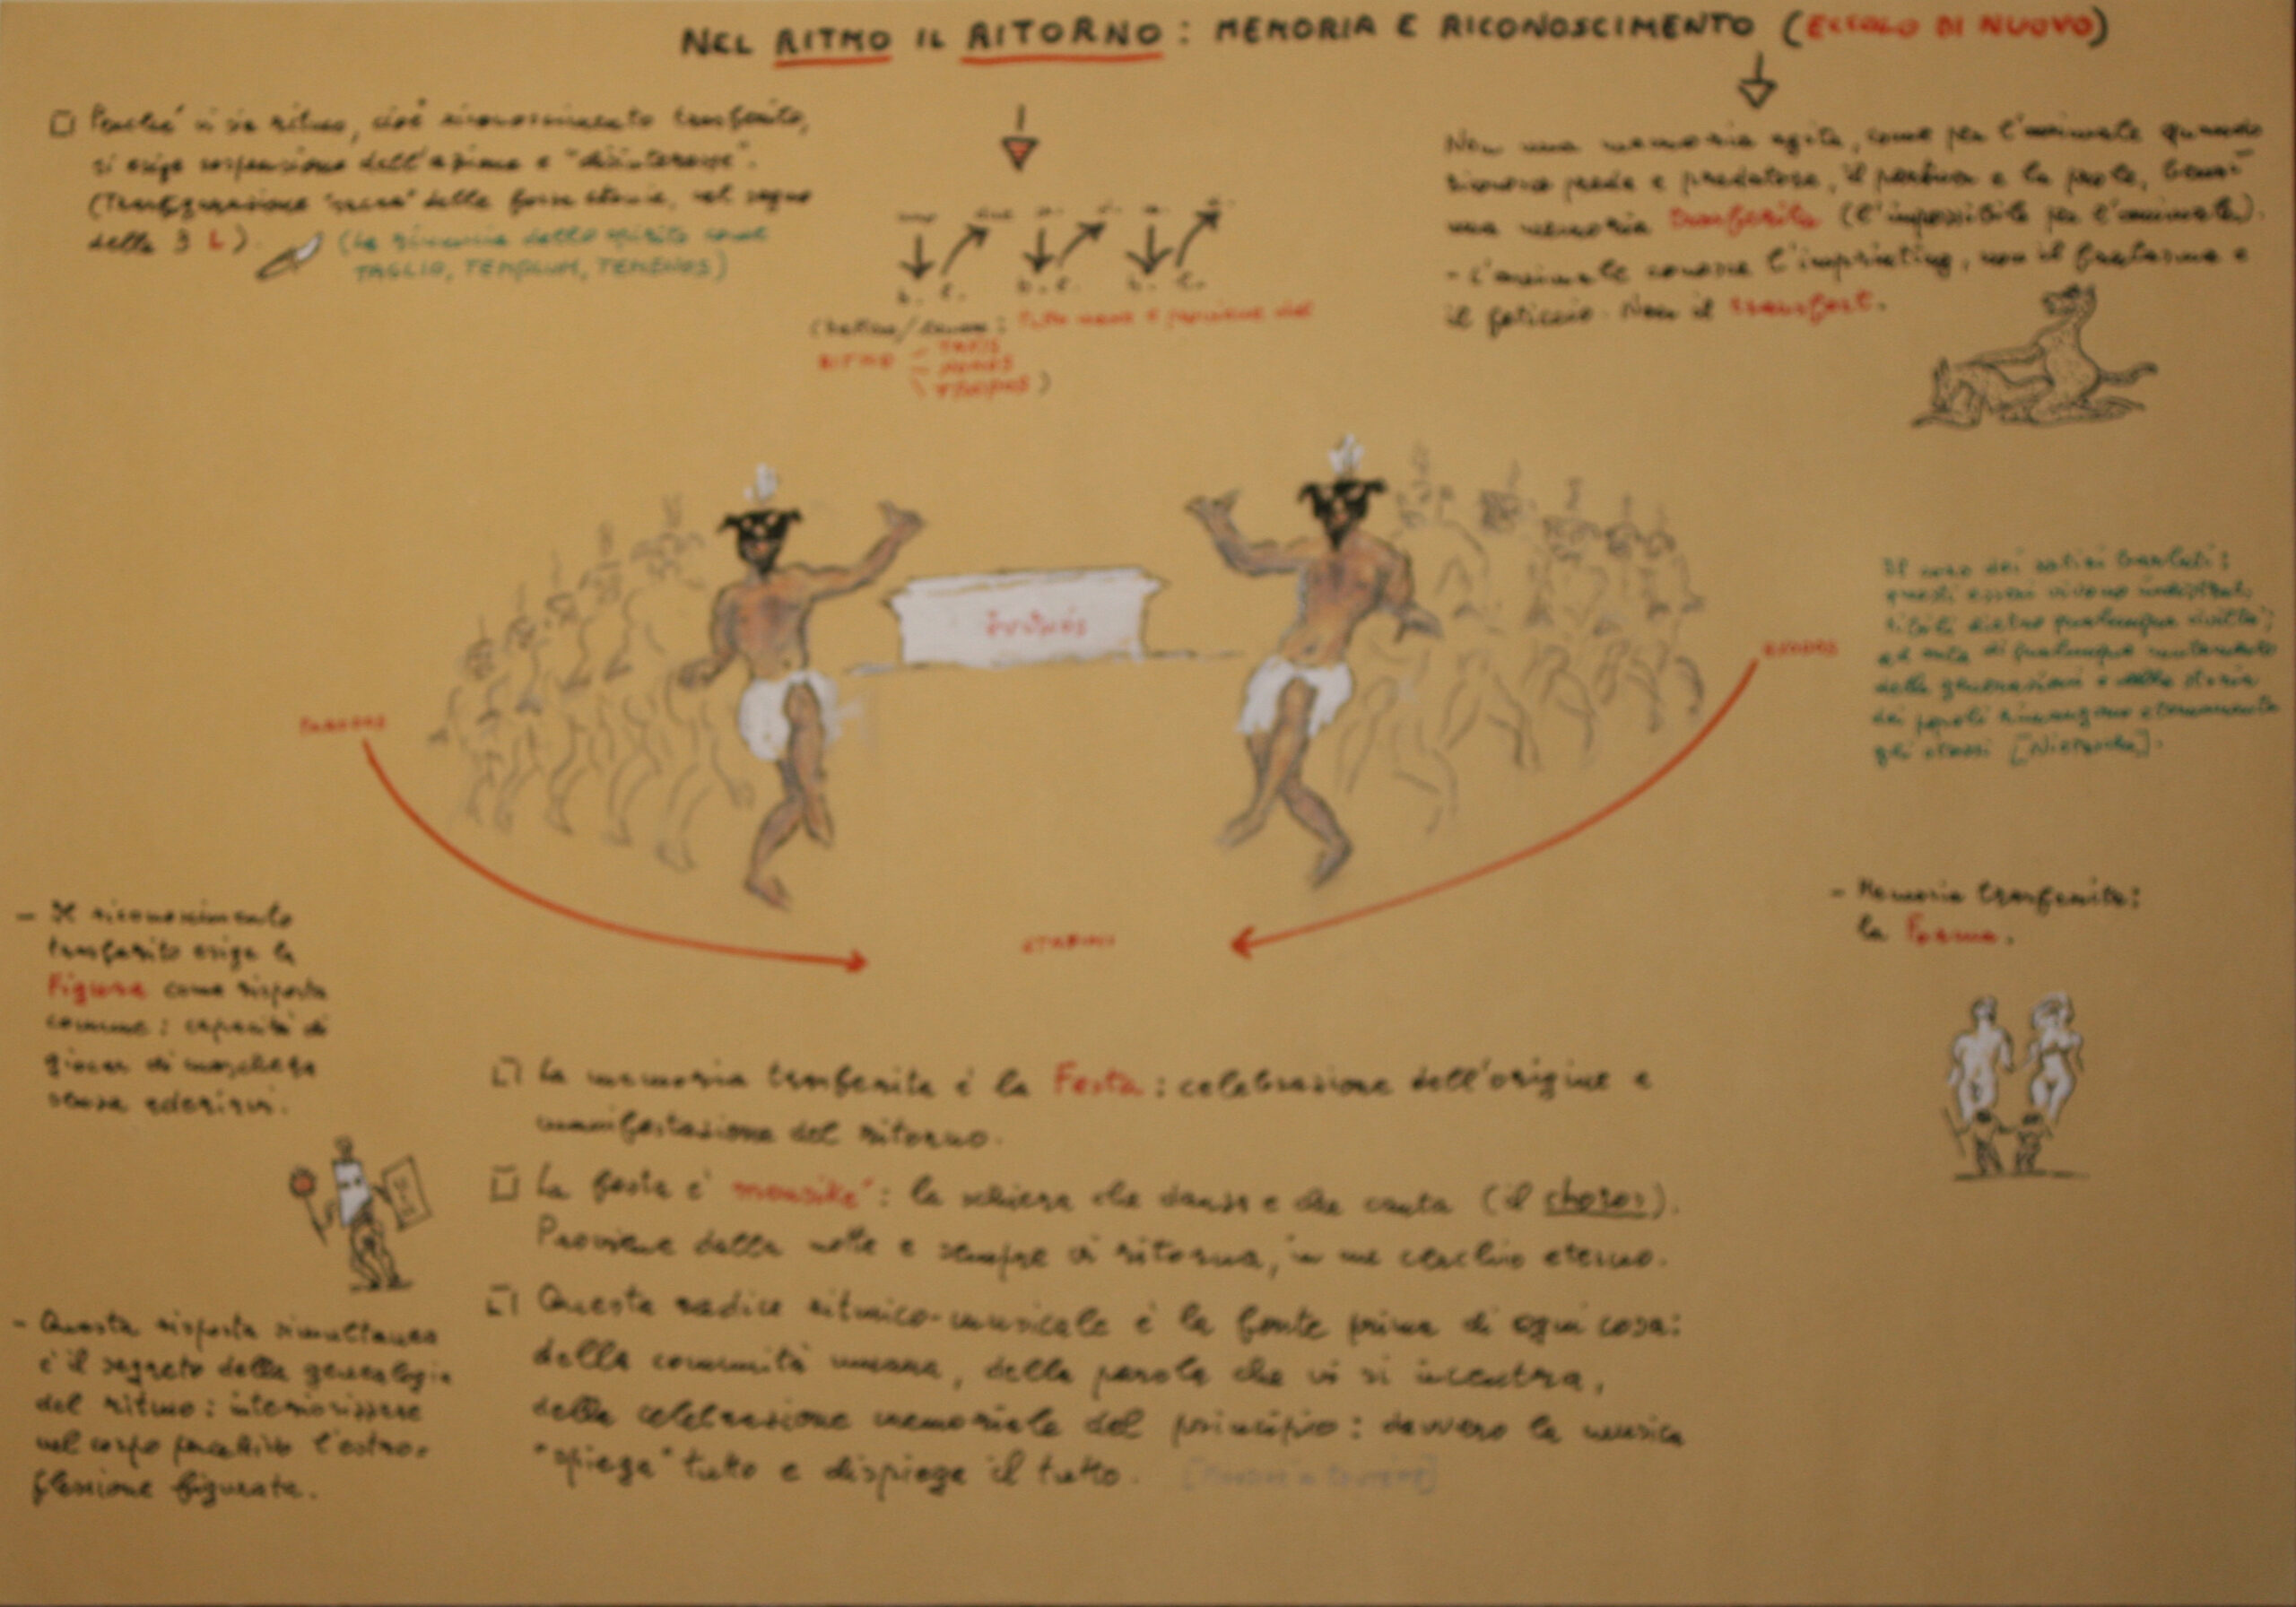 NEL RITMO IL RITORNO: MEMORIA E RICONOSCIMENTO (ECCOLO DI NUOVO)
Perché vi sia ritmo, cioè riconoscimento trasferito,
si esige sospensione dell'azione e "disinteresse".
(Trasfigurazione "sacra" delle forze storiche, nel segno
delle 3 L).
(La rinuncia dello spirito come
TAGLIO, TEMPLUM, TEMENOS)
tutto nasce e proviene dal
RITMO
TAXIS
NOMOS
TROPOS)
Non una memoria agita, come per l'animale quando
riconosce preda e predatore, il partner e la prole, bensì
una memoria trasferita (l'impossibile per l'animale).
- L'animale conosce l'imprinting, non il fantasma e
il feticcio. Non il transfert.
PARODOS
EXODOS
STASIMI
Il coro dei satiri barbuti:
questi esseri vivono indistrut-
tibili dietro qualunque civiltà;
ad onta di qualunque mutamento
delle generazioni e della storia
dei popoli rimangono eternamente
gli stessi [Nietzsche].
- Il riconoscimento
trasferito esige la
Figura come risposta
comune: capacità di
giocar di maschera
senza aderirvi.
- Memoria trasferita:
la Forma.
La memoria trasferita è la Festa: celebrazione dell'origine e
manifestazione del ritorno.
La festa è mousiké: la schiera che danza e che canta (il choros).
Proviene dalla notte e sempre vi ritorna, in un cerchio eterno.
Questa radice ritmico-musicale è la fonte prima di ogni cosa:
della comunità umana, della parola che vi si incentra,
della celebrazione memoriale del principio: davvero la musica
"spiega" tutto e dispiega il tutto.
- Questa risposta simultanea
è il segreto della genealogia
del ritmo: interiorizzare
nel corpo percettivo l'estro-
flessione figurata.